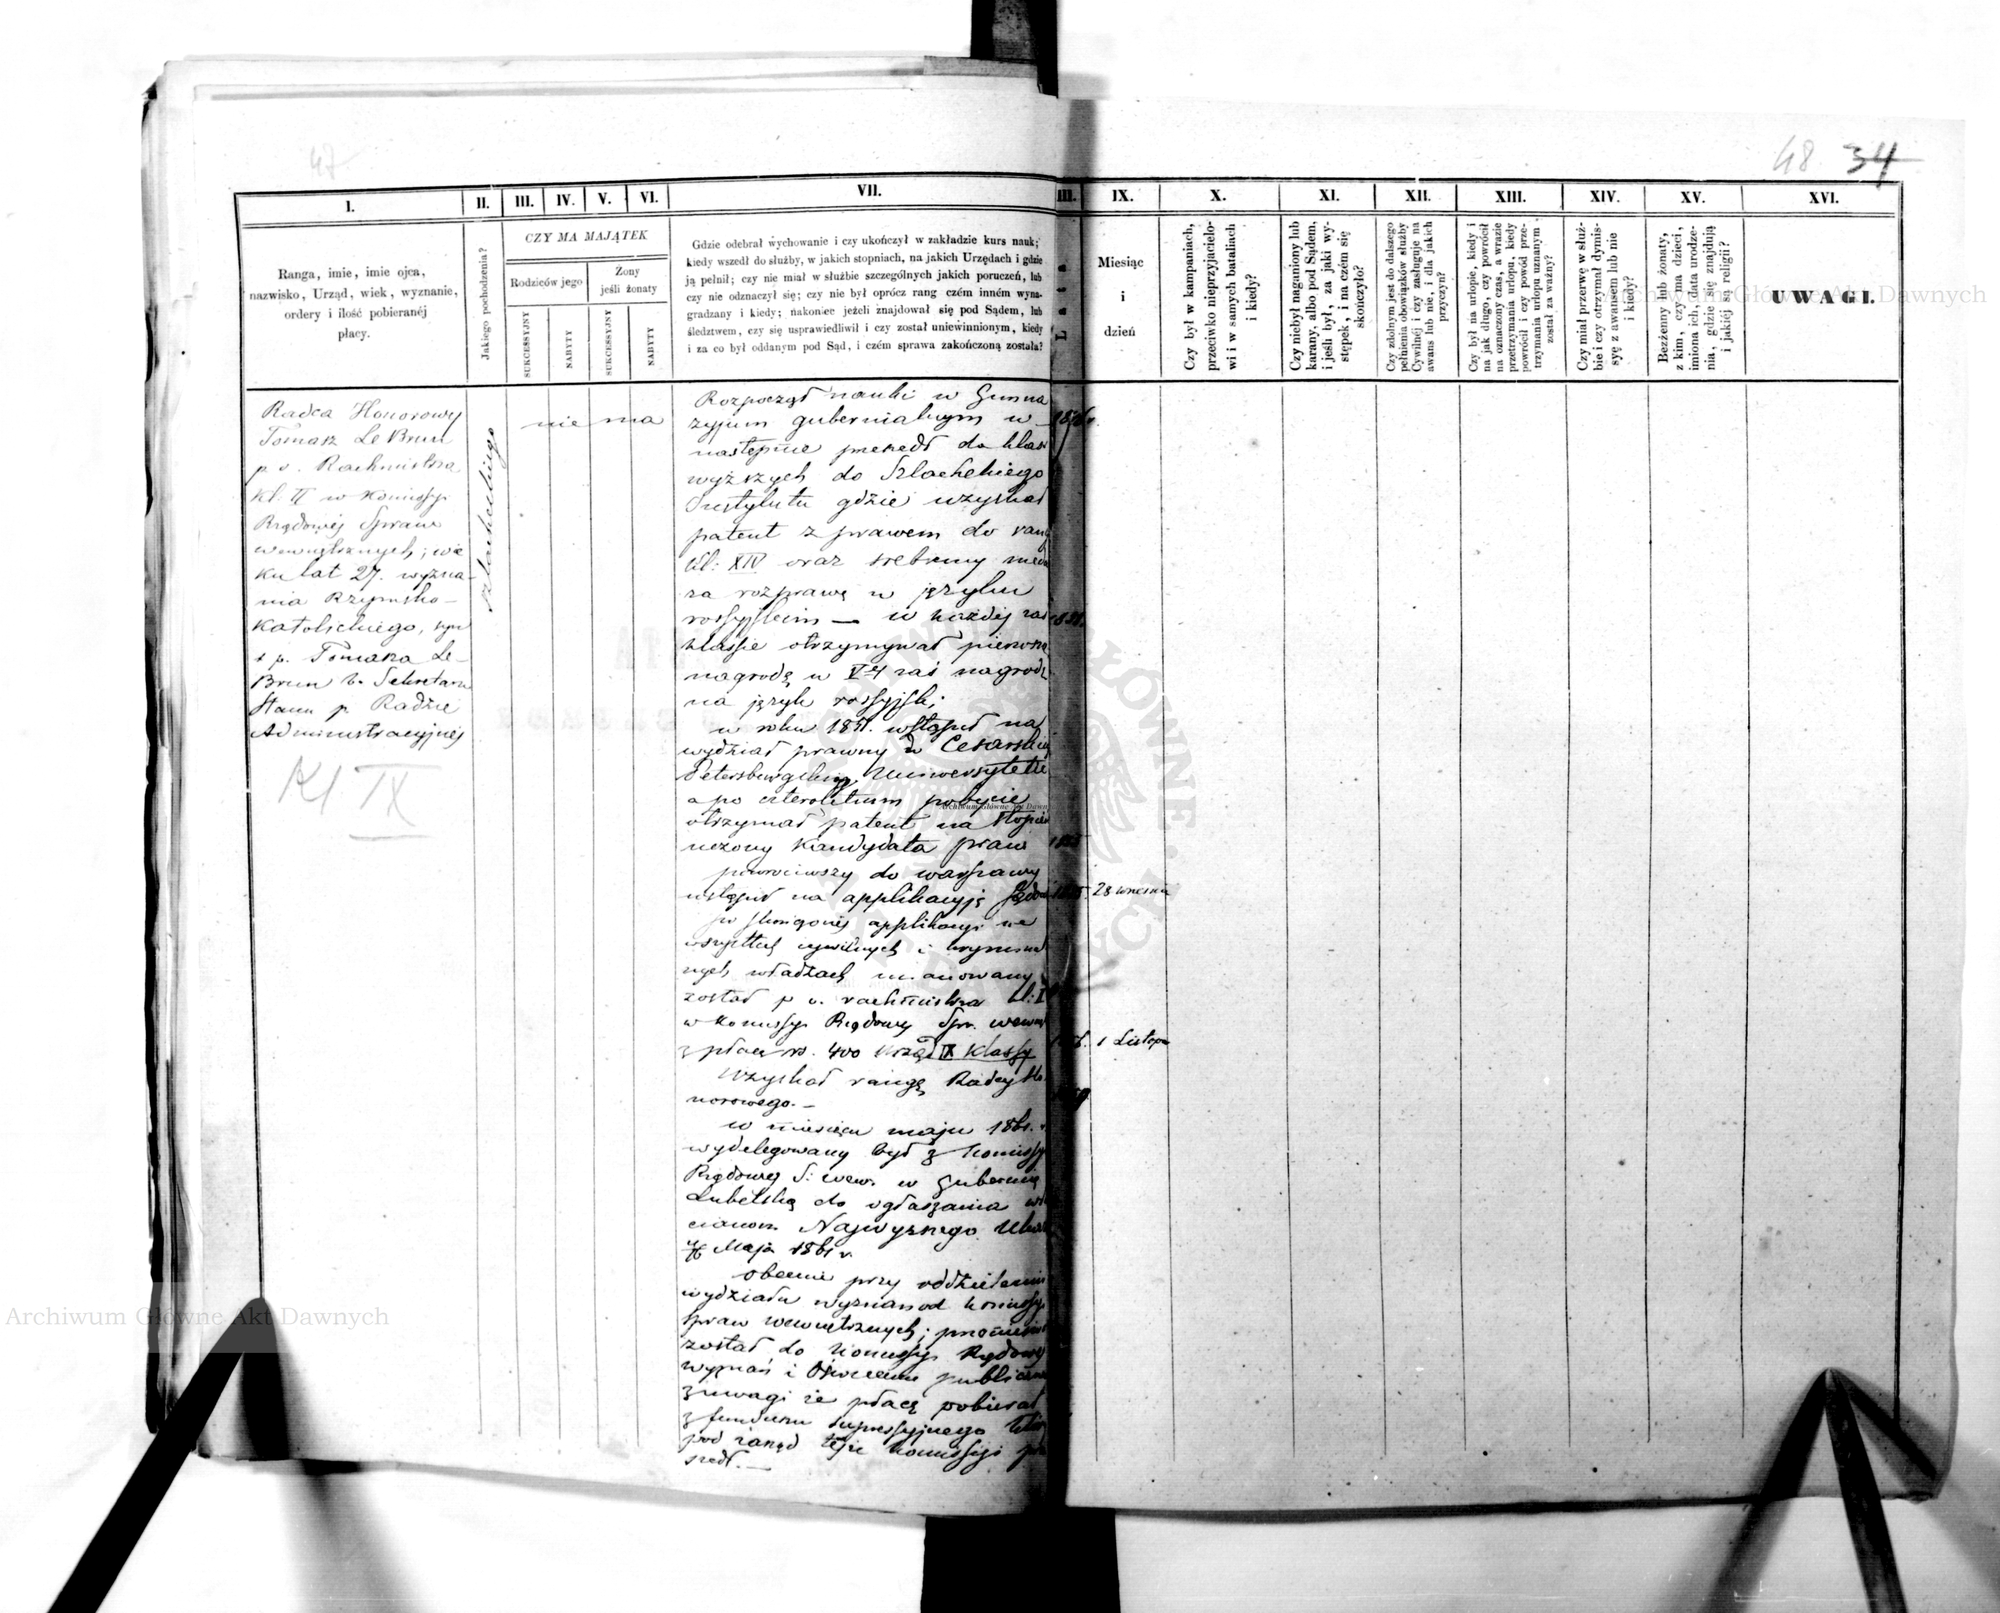 47
48 34
I. II. III. IV. V. VI. VII. III. IX. X. XI. XII. XIII. XIV. XV. XVI.
Ranga, imie, imie ojca,
nazwisko, Urząd, wiek, wyznanie,
ordery i ilość pobieranéj
płacy.
Jakiego pochodzenia?
CZY MA MAJĄTEK
Rodziców jego
Żony
jeśli żonaty
SUKCESSYJNY
NABYTY
SUKCESSYJNY
NABYTY
Gdzie odebrał wychowanie i czy ukończył w zakładzie kurs nauk;
kiedy wszedł do służby, w jakich stopniach, na jakich Urzędach i gdzie
ją pełnił; czy nie miał w służbie szczególnych jakich poruczeń, lub
czy nie odznaczył się; czy nie był oprócz rang czém inném wyna-
gradzany i kiedy; nakoniec jeżeli znajdował się pod Sądem, lub
śledztwem, czy się usprawiedliwił i czy został uniewinnionym, kiedy
i za co był oddanym pod Sąd, i czém sprawa zakończoną została?
Lata
Miesiąc
i
dzień
Czy był w kampaniach,
przeciwko nieprzyjacielo-
wi i w samych bataliach
i kiedy?
Czy niebył naganiony lub
karany, albo pod Sądem,
i jeśli był, za jaki wy-
stępek, i na czém się
skończyło?
Czy zdolnym jest do dalszego
pełnienia obowiązków służby
Cywilnéj i czy zasługuje na
awans lub nie, i dla jakich
przyczyn?
Czy był na urlopie, kiedy i
na jak długo, czy powrócił
na oznaczony czas, a w razie
przetrzymania urlopu, kiedy
powrócił i czy powód prze-
trzymania urlopu uznanym
został za ważny?
Czy miał przerwę w służ-
bie i czy otrzymał dymis-
syę z awansem lub nie
i kiedy?
Bezżenny lub żonaty,
z kim, czy ma dzieci,
imiona ich, data urodze-
nia, gdzie się znajdują
i jakiéj są religii?
UWAGI.
Radca Honorowy
Tomasz Le Brun
p. o. Rachmistrza
Kl: II w Komissyi
Rządowéj Spraw
wewnętrznych; wie
ku lat 27. wyzna-
nia Rzymsko-
Katolickiego, syn
ś p. Tomasza Le-
Brun b. Sekretarza
Stanu p Radzie
Administracyjnéj
Kl IX
szlacheckiego
nie ma
Rozpoczął nauki w Gimna
zyjum gubernialnym w
następnie przeszedł do klas
wyższych do Szlacheckiego
Instytutu gdzie uzyskał
patent z prawem do rang
Kl: XIV oraz srebrny meda
za rozprawę w języku
rossyjskim — w każdéj zaś
klassie otrzymywał pierwszą
nagrodę w Vtéj zaś nagrodę
na język rossyjski;
w roku 1851. wstąpił na
wydział prawny w Cesarskim
Petersburgskim Uniwersytetie
a po czteroletnim pobycie
otrzymał patent na stopień
uczony Kandydata praw
powróciwszy do Warszawy
wstąpił na applikacyję Sądow
po skończonéj applikacyi we
wszystkich cywilnych i krymina
nych władzach mianowany
został p o. rachmistrza kl: I
w Komissyi Rządowéj Spr. wewn
z płacą rs. 400 Urząd IX klassy
Uzyskał rangę Radcy Ho
norowego. —
w miesiącu maju 1861. r.
wydelegowany był z Komissyi
Rządowej S: wew. w Gubernię
Lubelską do ogłaszania wł
cianom Najwyższego Ukazu
4/16 Maja 1861 r.
obecnie przy oddzieleniu
wydziału wyznań od Komissyi
spraw wewnętrznych; przeniesion
został do Komissyi Rządowéj
wyznań i Oświecenia publiczne
z uwagi że płacę pobierał
z funduszu supressyjnego który
pod zarząd téjże Komissyi prze
szedł. —
1851.
28 września
1 Listopa
Archiwum Główne Akt Dawnych
Archiwum Główne Akt Dawnych
Archiwum Główne Akt Dawn